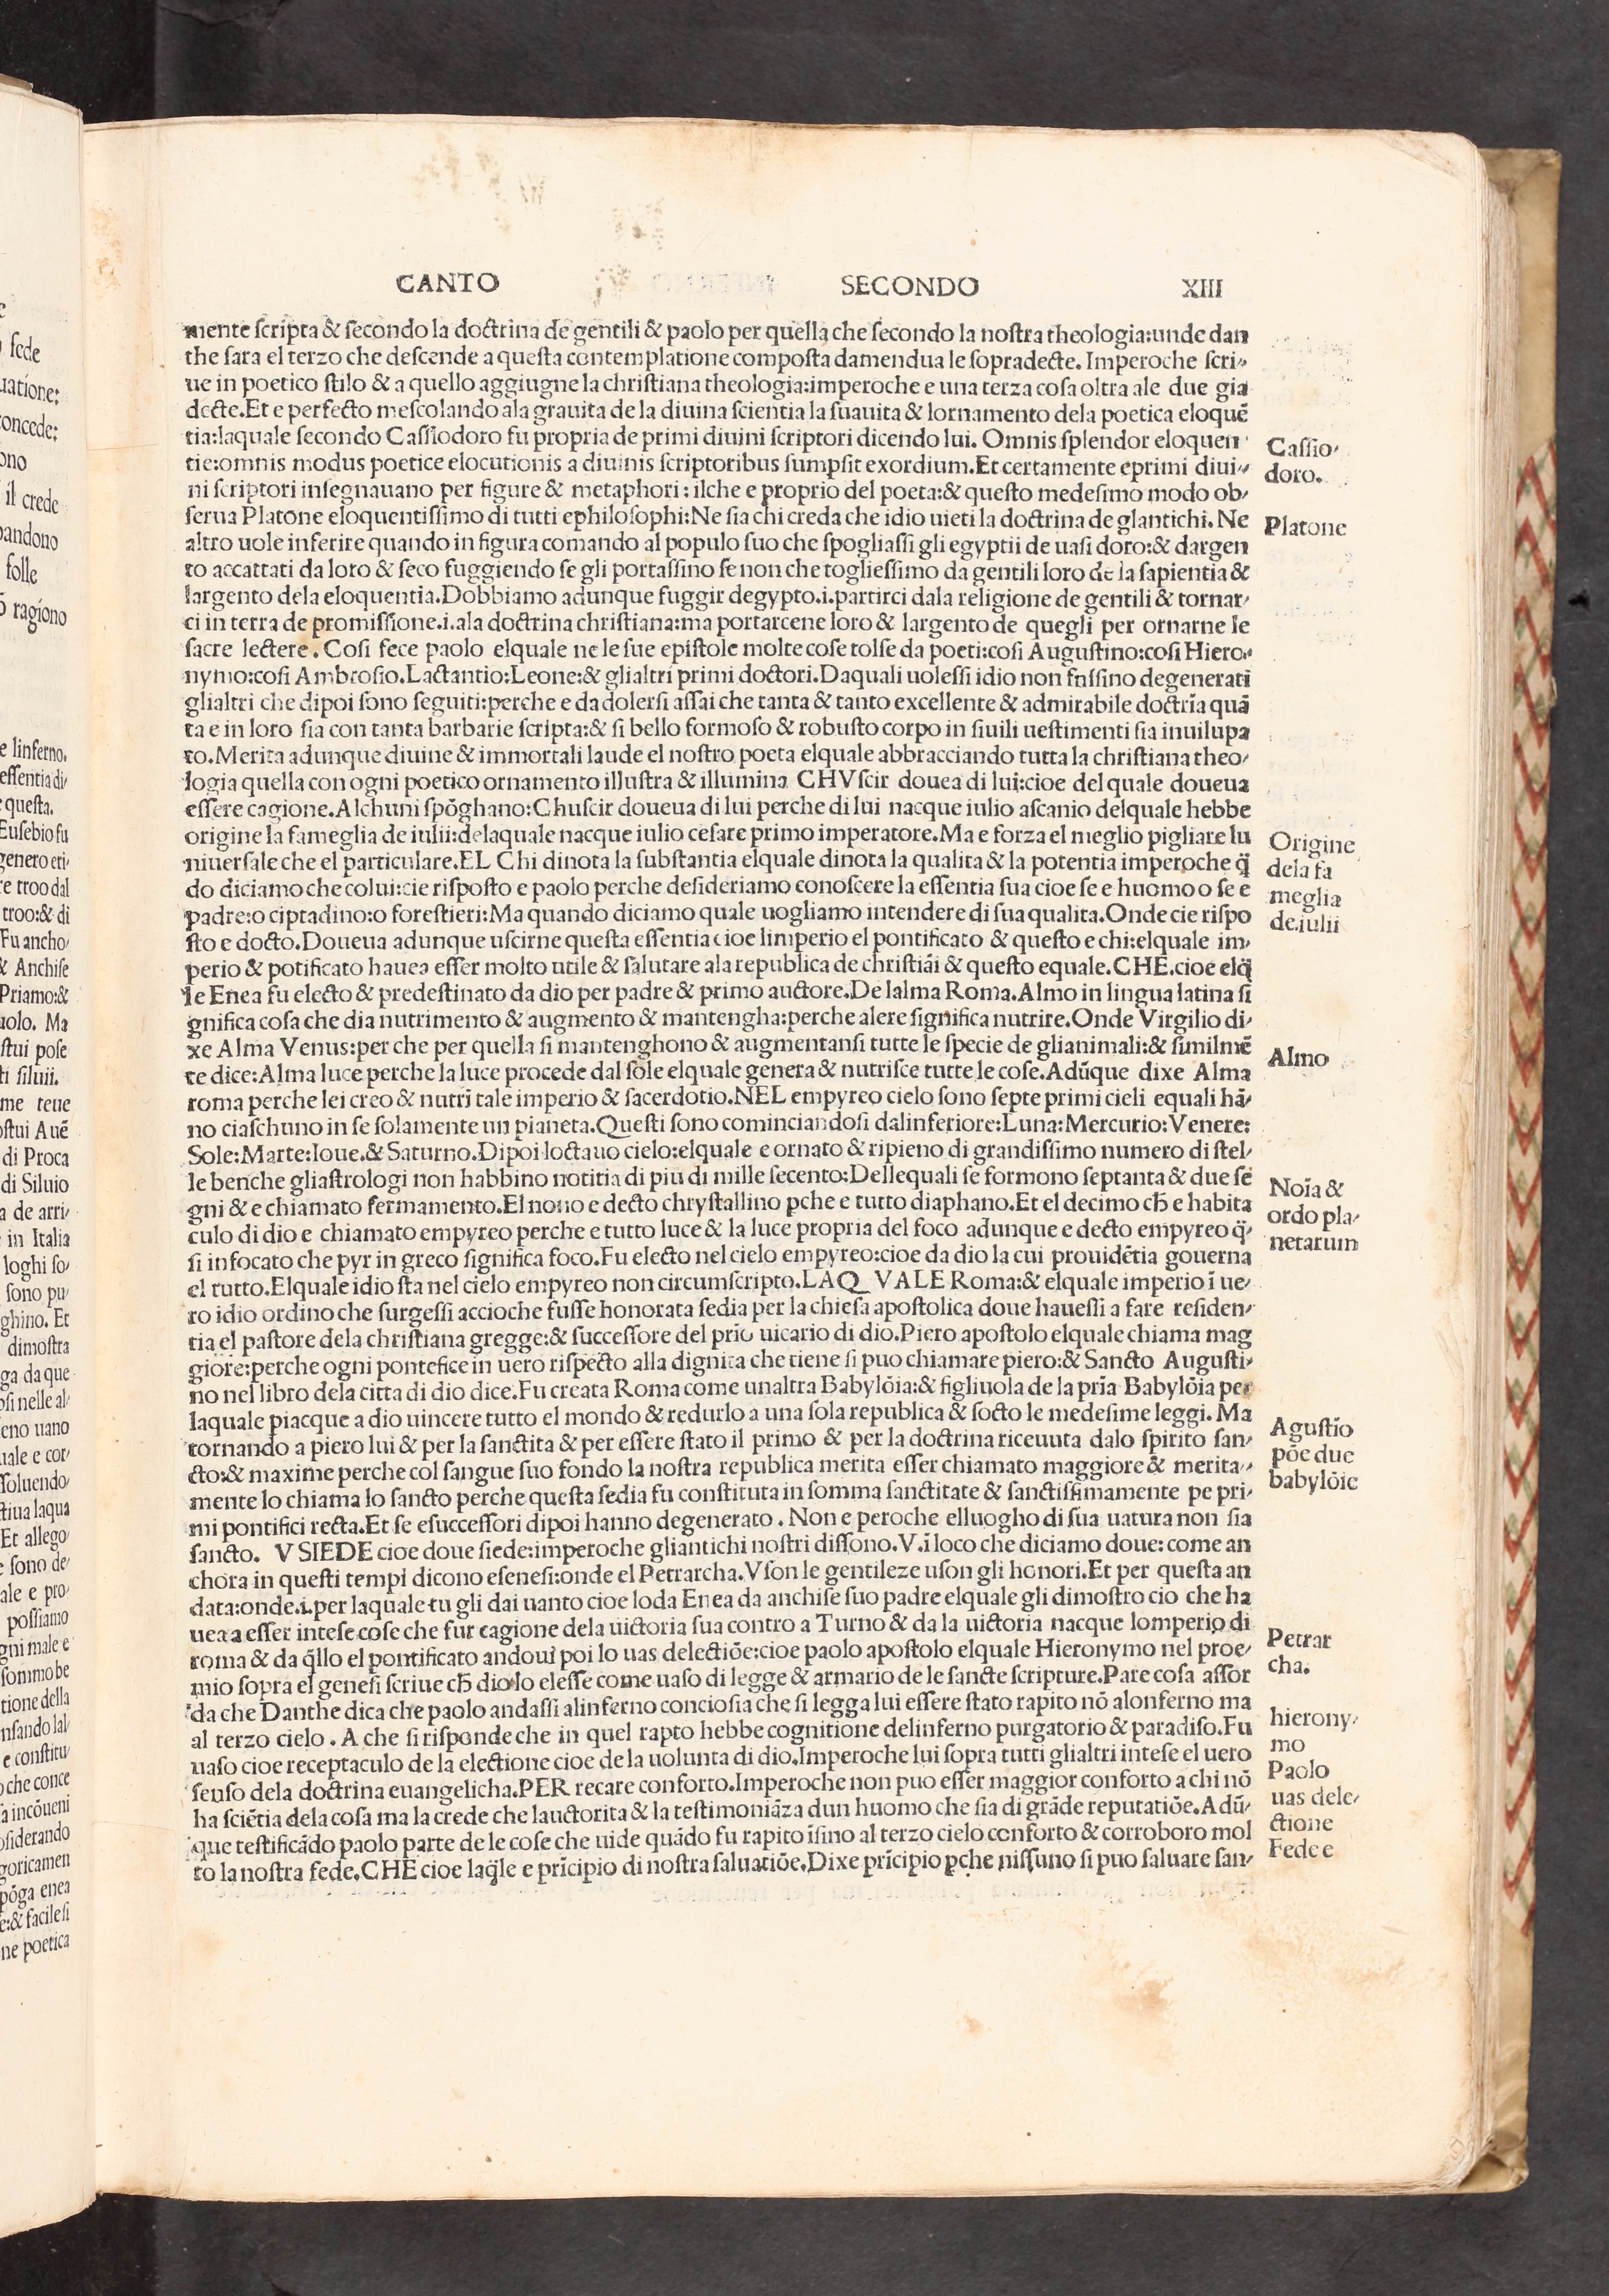 CANTO SECONDO XIII
mente ſcripta & ſecondo la doctrina de gentili & paolo per quella che ſecondo la noſtra theologia:unde dan
the ſara el terzo che deſcende a queſta contemplatione compoſta damendua le ſopradecte. Imperoche ſcri-
ue in poetico ſtilo & a quello aggiugne la chriſtiana theologia:imperoche e una terza coſa oltra ale due gia
decte.Et e perfecto meſcolando ala grauita de la diuina ſcientia la ſuauita & lornamento dela poetica eloquē
tia:laquale ſecondo Caſſiodoro fu propria de primi diuini ſcriptori dicendo lui. Omnis ſplendor eloquen
tie:omnis modus poetice elocutionis a diuinis ſcriptoribus ſumpſit exordium.Et certamente eprimi diui-
ni ſcriptori inſegnauano per figure & metaphori : ilche e proprio del poeta:& queſto medeſimo modo ob-
ſerua Platone eloquentiſſimo di tutti ephiloſophi:Ne ſia chi creda che idio uieti la doctrina de glantichi. Ne
altro uole inferire quando in figura comando al populo ſuo che ſpogliaſſi gli egyptii de uaſi doro:& dargen
to accattati da loro & ſeco fuggiendo ſe gli portaſſino ſe non che toglieſſimo da gentili loro de la ſapientia &
largento dela eloquentia.Dobbiamo adunque fuggir degypto.i.partirci dala religione de gentili & tornar-
ci in terra de promiſſione.i.ala doctrina chriſtiana:ma portarcene loro & largento de quegli per ornarne le
ſacre lectere . Coſi fece paolo elquale ne le ſue epiſtole molte coſe tolſe da poeti:coſi Auguſtino:coſi Hiero-
nymo:coſi Ambroſio.Lactantio:Leone:& glialtri primi doctori.Daquali uoleſſi idio non fuſſino degenerati
glialtri che dipoi ſono ſeguiti:perche e da dolerſi aſſai che tanta & tanto excellente & admirabile doctrīa quā
ta e in loro ſia con tanta barbarie ſcripta:& ſi bello formoſo & robuſto corpo in ſiuili ueſtimenti ſia inuilupa
to.Merita adunque diuine & immortali laude el noſtro poeta elquale abbracciando tutta la chriſtiana theo-
logia quella con ogni poetico ornamento illuſtra & illumina CHVſcir douea di lui:cioe del quale doueua
eſſere cagione.Alchuni ſpōghano:Chuſcir doueua di lui perche di lui nacque iulio aſcanio delquale hebbe
origine la fameglia de iulii:delaquale nacque iulio ceſare primo imperatore.Ma e forza el meglio pigliare lu
niuerſale che el particulare.EL Chi dinota la ſubſtantia elquale dinota la qualita & la potentia imperoche q̄
do diciamo che colui:cie riſpoſto e paolo perche deſideriamo conoſcere la eſſentia ſua cioe ſe e huomo o ſe e
padre:o ciptadino:o foreſtieri:Ma quando diciamo quale uogliamo intendere di ſua qualita.Onde cie riſpo
ſto e docto.Doueua adunque uſcirne queſta eſſentia cioe limperio el pontificato & queſto e chi:elquale im-
perio & potificato hauea eſſer molto utile & ſalutare ala republica de chriſtiāi & queſto equale.CHE.cioe elq̄
le Enea fu electo & predeſtinato da dio per padre & primo auctore.De lalma Roma.Almo in lingua latina ſi
gnifica coſa che dia nutrimento & augmento & mantengha:perche alere ſignifica nutrire.Onde Virgilio di-
xe Alma Venus:per che per quella ſi mantenghono & augmentanſi tutte le ſpecie de glianimali:& ſimilmē
te dice:Alma luce perche la luce procede dal ſole elquale genera & nutriſce tutte le coſe.Adūque dixe Alma
roma perche lei creo & nutrī tale imperio & ſacerdotio.NEL empyreo cielo ſono ſepte primi cieli equali hā-
no ciaſchuno in ſe ſolamente un pianeta.Queſti ſono cominciandoſi dalinferiore:Luna:Mercurio:Venere:
Sole:Marte:Ioue.& Saturno.Dipoi loctauo cielo:elquale e ornato & ripieno di grandiſſimo numero di ſtel-
le benche gliaſtrologi non habbino notitia di piu di mille ſecento:Dellequali ſe formono ſeptanta & due ſe
gni & e chiamato fermamento.El nono e decto chryſtallino pche e tutto diaphano.Et el decimo cħ e habita
culo di dio e chiamato empyreo perche e tutto luce & la luce propria del foco adunque e decto empyreo q̄-
ſi infocato che pyr in greco ſignifica foco.Fu electo nel cielo empyreo:cioe da dio la cui prouidētia gouerna
el tutto.Elquale idio ſta nel cielo empyreo non circumſcripto.LAQ VALE Roma:& elquale imperio ī ue-
ro idio ordino che ſurgeſſi accioche fuſſe honorata ſedia per la chieſa apoſtolica doue haueſſi a fare reſiden-
tia el paſtore dela chriſtiana gregge:& ſucceſſore del prīo uicario di dio.Piero apoſtolo elquale chiama mag
giore:perche ogni pontefice in uero riſpecto alla dignita che tiene ſi puo chiamare piero:& Sancto Auguſti-
no nel libro dela citta di dio dice.Fu creata Roma come unaltra Babylōia:& figliuola de la prīa Babylōia per
laquale piacque a dio uincere tutto el mondo & redurlo a una ſola republica & ſocto le medeſime leggi. Ma
tornando a piero lui & per la ſanctita & per eſſere ſtato il primo & per la doctrina riceuuta dalo ſpirito ſan-
cto:& maxime perche col ſangue ſuo fondo la noſtra republica merita eſſer chiamato maggiore & merita-
mente lo chiama lo ſancto perche queſta ſedia fu conſtituta in ſomma ſanctitate & ſanctiſſimamente pe pri-
mi pontifici recta.Et ſe eſucceſſori dipoi hanno degenerato . Non e peroche elluogho di ſua uatura non ſia
ſancto. V SIEDE cioe doue ſiede:imperoche gliantichi noſtri diſſono.V.ī loco che diciamo doue: come an
chora in queſti tempi dicono eſeneſi:onde el Petrarcha.Vſon le gentileze uſon gli honori.Et per queſta an
data:onde.i.per laquale tu gli dai uanto cioe loda Enea da anchiſe ſuo padre elquale gli dimoſtro cio che ha
uea a eſſer inteſe coſe che fur cagione dela uictoria ſua contro a Turno & da la uictoria nacque lomperio di
roma & da q̄llo el pontificato andouī poi lo uas delectiōe:cioe paolo apoſtolo elquale Hieronymo nel proe-
mio ſopra el geneſi ſcriue cħ dio lo eleſſe come uaſo di legge & armario de le ſancte ſcripture.Pare coſa aſſor
da che Danthe dica che paolo andaſſi alinferno concioſia che ſi legga lui eſſere ſtato rapito nō alonferno ma
al terzo cielo . A che ſi riſponde che in quel rapto hebbe cognitione delinferno purgatorio & paradiſo.Fu
uaſo cioe receptaculo de la electione cioe de la uolunta di dio.Imperoche lui ſopra tutti glialtri inteſe el uero
ſenſo dela doctrina euangelicha.PER recare conforto.Imperoche non puo eſſer maggior conforto a chi nō
ha ſciētia dela coſa ma la crede che lauctorita & la teſtimoniāza dun huomo che ſia di grāde reputatiōe.Adū-
que teſtificādo paolo parte de le coſe che uide quādo fu rapito īſino al terzo cielo conforto & corroboro mol
to la noſtra fede.CHE cioe laq̄le e prīcipio di noſtra ſaluatiōe.Dixe prīcipio pche niſſuno ſi puo ſaluare ſan-
Caſſio-
doro.
Platone
Origine
dela fa
meglia
de.iulii
Almo
Noīa &
ordo pla-
netarum
Aguſtīo
pōe due
babylōie
Petrar
cha.
hierony-
mo
Paolo
uas dele-
ctione
Fede e